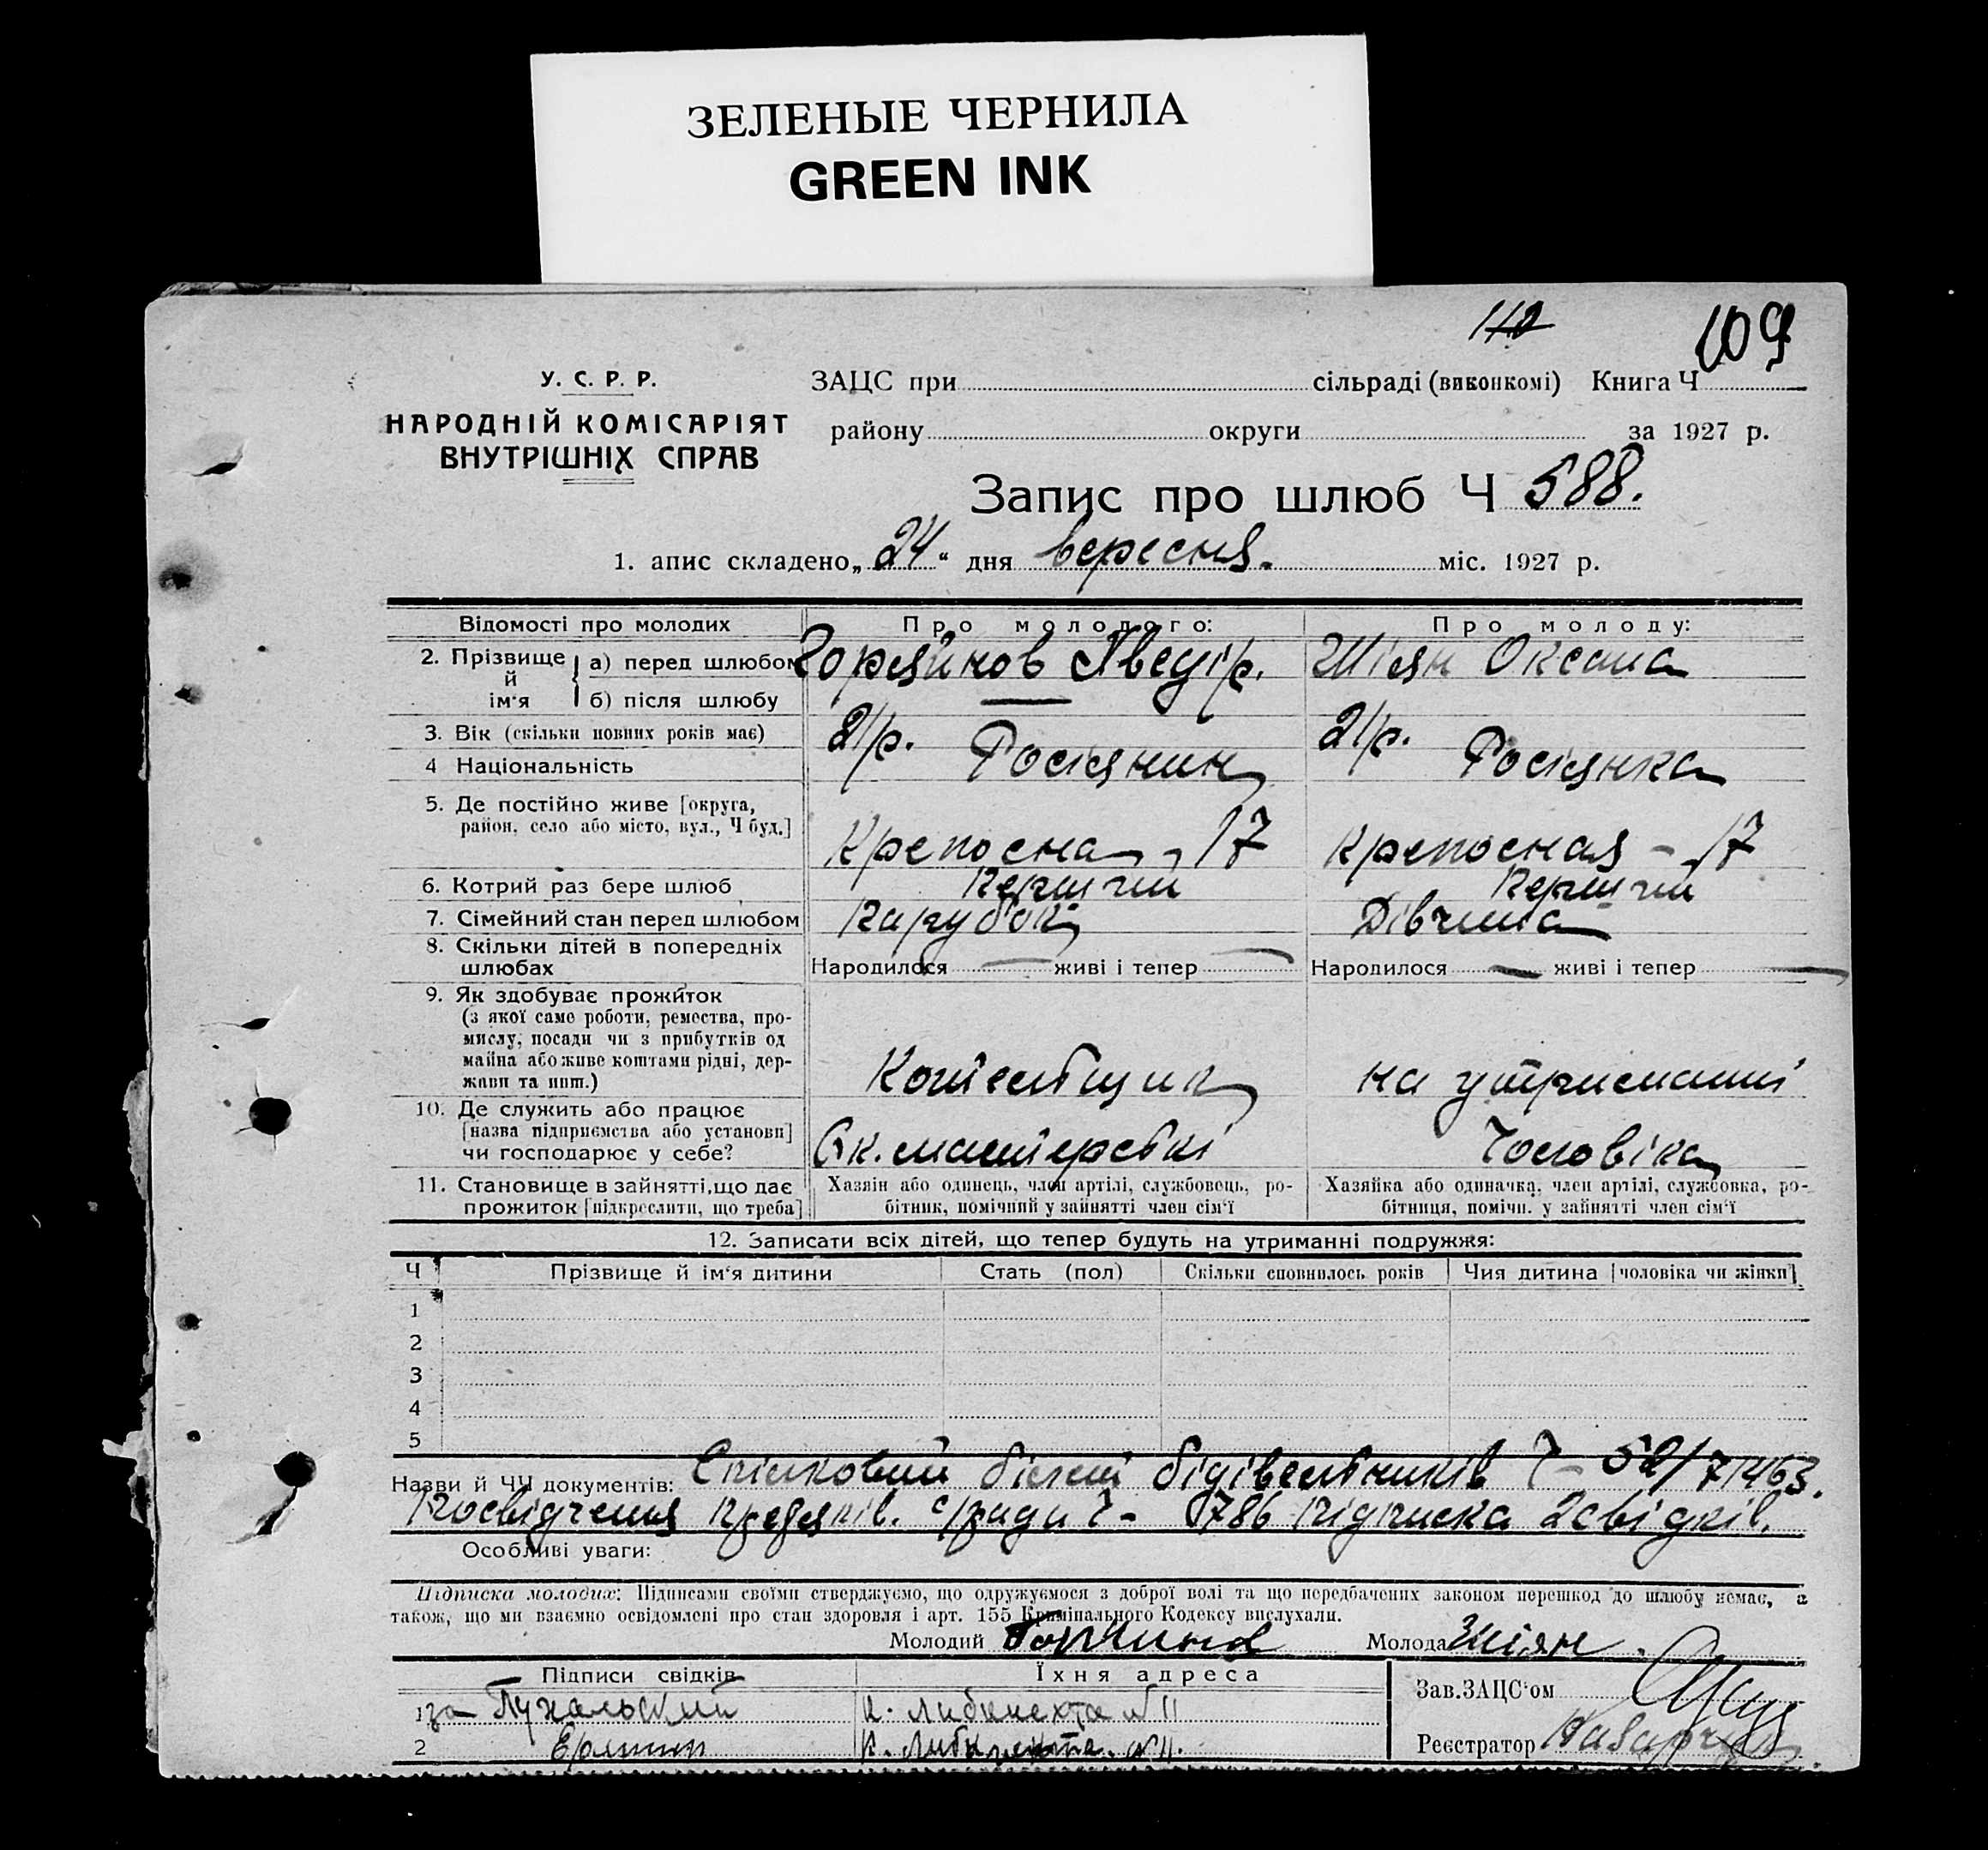 ЗЕЛЕНЫЕ ЧЕРНИЛА
GREEN INK
110
109
У. С. Р. Р.
НАРОДНІЙ КОМІСАРІЯТ
ВНУТРІШНІХ СПРАВ
ЗАЦС при сільраді (виконкомі) Книга Ч
району округи за 1927 р.
Запис про шлюб Ч 588.
1. апис складено „24“ дня вересня. міс. 1927 р.
Відомості про молодих Про молодого: Про молоду:
2. Прізвище й ім'я а) перед шлюбом Горяйнов Шіян Оксана
б) після шлюбу —
3. Вік (скільки повних років має) 21/р. 21/р.
4 Національність Росіянин Росіянка
5. Де постійно живе [округа,
район, село або місто, вул., Ч буд.] Крепосна - 17 Крепосная - 17
6. Котрий раз бере шлюб Перший Перший
7. Сімейний стан перед шлюбом Парубок Дівчина
8. Скільки дітей в попередніх
шлюбах Народилося — живі і тепер — Народилося — живі і тепер —
9. Як здобуває прожиток
(з якої саме роботи, ремества, про-
мислу, посади чи з прибутків од
майна або живе коштами рідні, дер-
жави та инш.) на утриманні
10. Де служить або працює
[назва підприємства або установи]
чи господарює у себе? Чоловіка
11. Становище в зайнятті, що дає
прожиток [підкреслити, що треба]
Хазяїн або одинець, член артілі, службовець, ро-
бітник, помічний у зайнятті член сім'ї
Хазяйка або одиначка, член артілі, службовка, ро-
бітниця, помічн. у зайнятті член сім'ї
12. Записати всіх дітей, що тепер будуть на утриманні подружжя:
Ч Прізвище й ім'я дитини Стать (пол) Скільки сповнилось років Чия дитина [чоловіка чи жінки]
1
2
3
4
5
Назви й ЧЧ документів: Спілковий білет Ч - 52/71463.
Посвідчення с/ради Ч - 1786 підписка 2 свідків.
Особливі уваги:
Підписка молодих: Підписами своїми стверджуємо, що одружуємося з доброї волі та що передбачених законом перешкод до шлюбу немає, а
також, що ми взаємно освідомлені про стан здоровля і арт. 155 Кримінального Кодексу вислухали.
Молодий Горяинов Молода Шіян.
Підписи свідків Їхня адреса Зав. ЗАЦС'ом
1 за К. Либкнехта № 11
2 К. Либкнехта № 11. Реєстратор